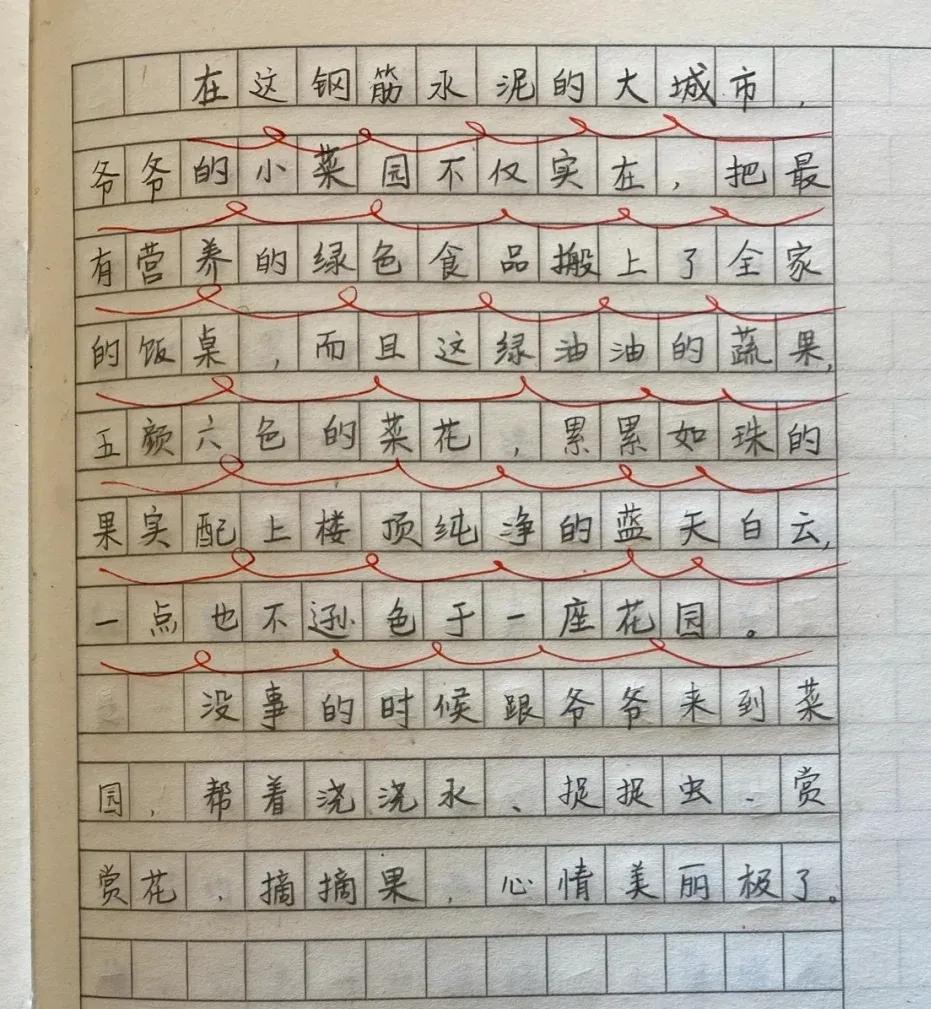 在这钢筋水泥的大城市，
爷爷的小菜园不仅实在，把最
有营养的绿色食品搬上了全家
的饭桌，而且这绿油油的蔬果，
五颜六色的菜花，累累如珠的
果实配上楼顶纯净的蓝天白云，
一点也不逊色于一座花园。
没事的时候跟爷爷来到菜
园，帮着浇浇水、捉捉虫、赏
赏花、摘摘果，心情美丽极了。